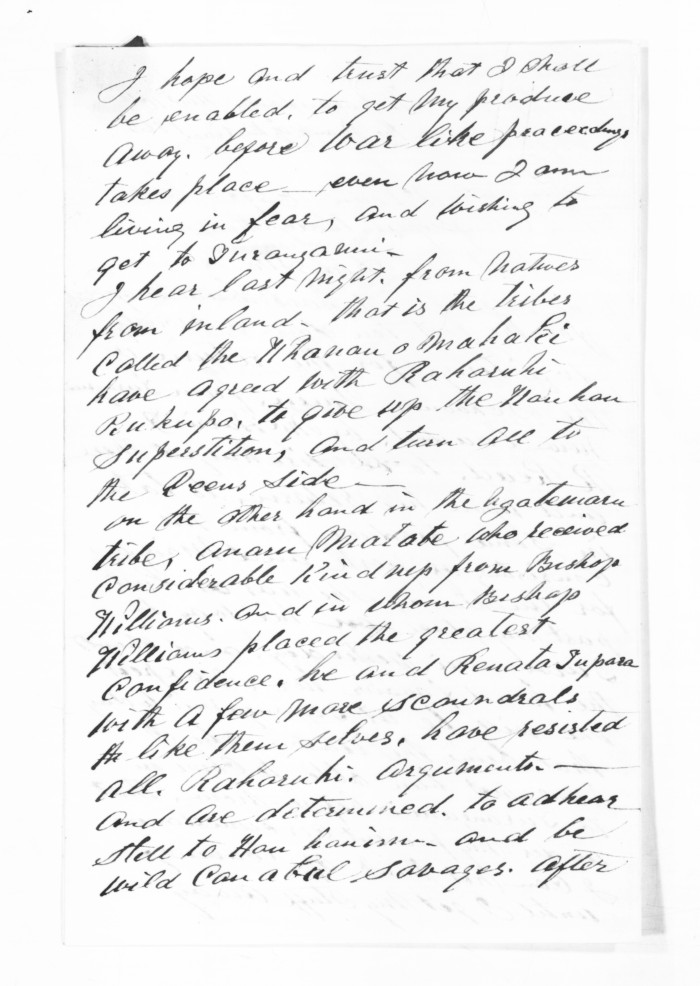 I hope and trust that I shall
be enabled. to get my produce
away. before War like proceedings
takes place - even now I am
living in fear, and wishing to
get to Turanganui -
I hear last night. from Natives
from inland - that is the tribes
called the Whanau o Mahaki
have agreed with Raharuhi
Rukupo, to give up the Hau hau
Superstition, and turn all to
the Queens side —
on the other hand in the ngatemaru
tribe, Anaru Matate who received
Considerable Kindness from Bishop
Williams. and in whom Bishop
Williams placed the greatest
Confidence. he and Renata Tupara
with a few more scoundrals
like them selves. have resisted
all. Raharuhi. arguments. —
and are determined. to adhear
still to Hau hauism - and be
wild Canabul Savages. after